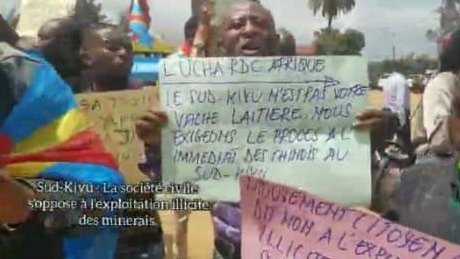 LUCHA RDC AFRIQUE
LE SUD-KIVU N'EST PAS VOTRE
VACHE LAITIERE, NOUS
EXIGEONS LE PROCES A L'
IMMEDIAT DES CHINOIS AU
SUD-KIVU
Sud-Kivu : La société civile
s'oppose à l'exploitation illicite
des minerais.
MOUVEMENT CITOYEN
DIT NON A L'EXP
ILLICI